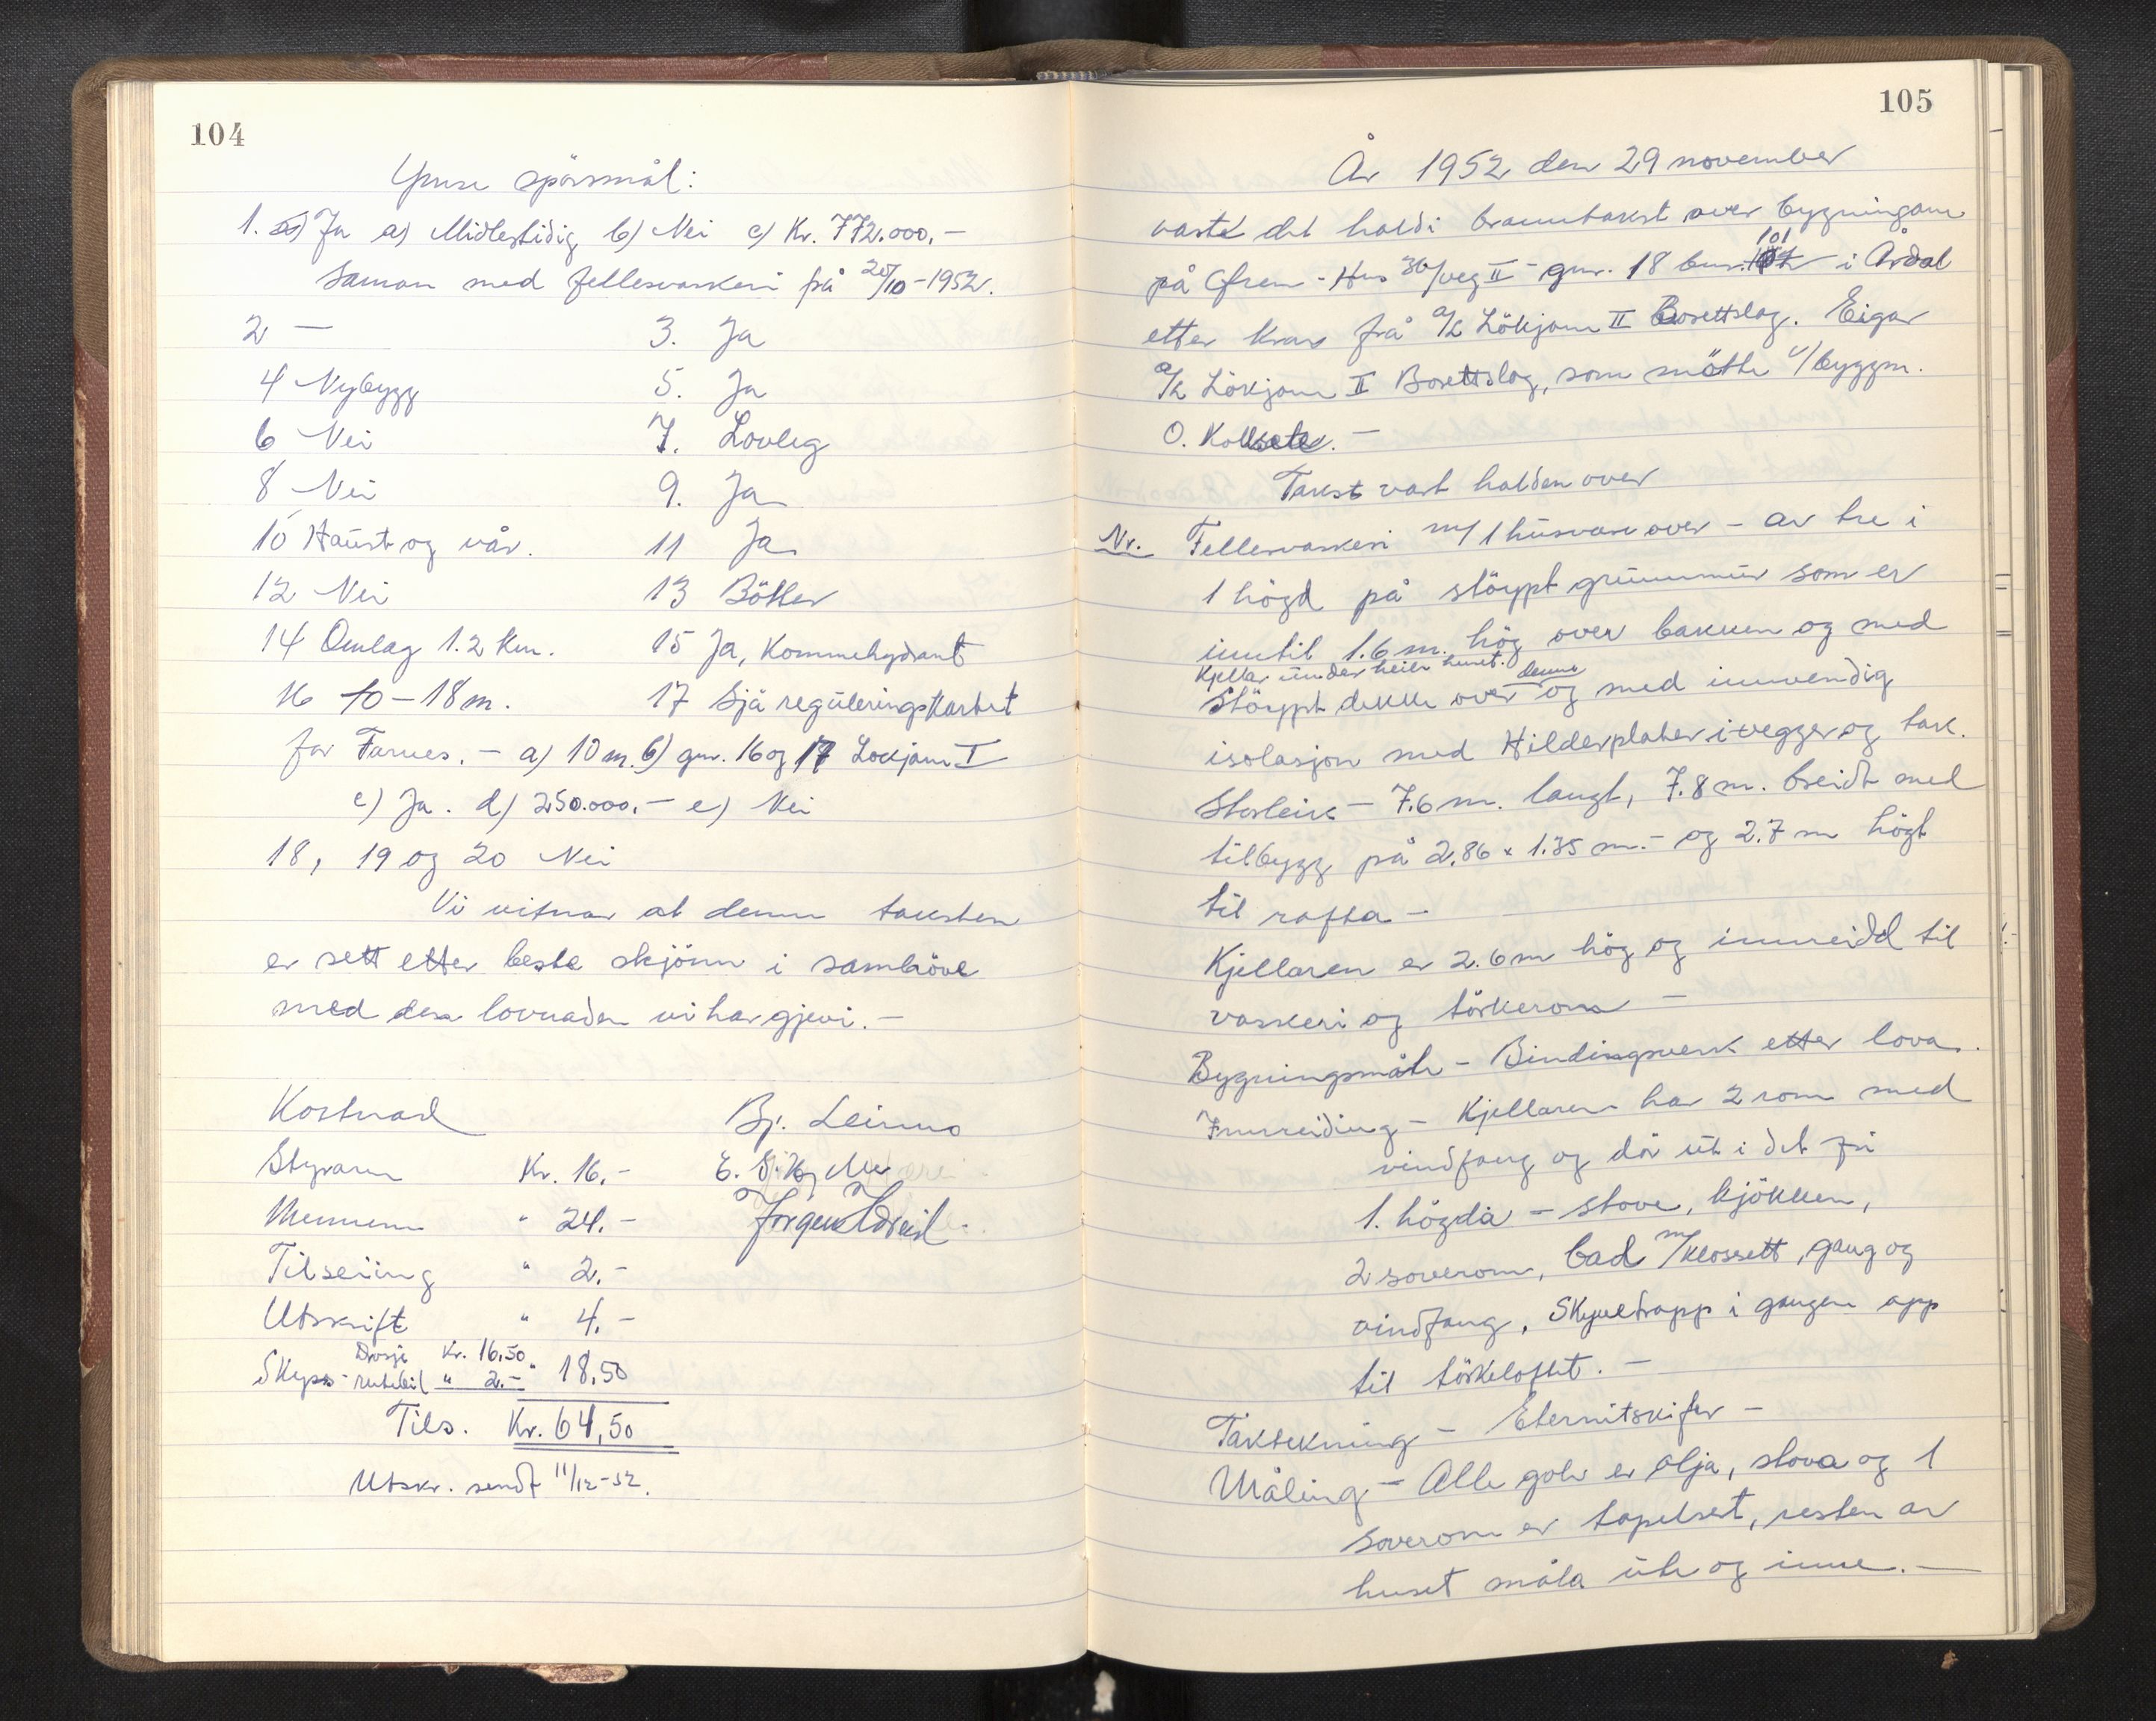 104
Ymse spörsmål:
1. Ja a) Midlestidig b) Nei c) Kr. 772.000.-
saman med fellesvaskeri på 20/10-1952.
2 — 3. Ja
4 Nybygg 5. Ja
6 Nei 7. Lovleg
8 Nei 9. Ja
10 Haust og vår. 11 Ja
12 Nei 13 Bötter
14 Omlag 1.2 km. 15 Ja, Kommehydrant
16 10-18 m. 17 Sjå reguleringskartet
for Farnes. - a) 10 m. b) gnr. 16 og 17 Lökjom I
c) Ja. d) 250.000.- e) Nei
18, 19 og 20 Nei
Vi vitnar at denne taksten
er sett etter beste skjönn i samhöve
med den lovnaden vi har gjevi.-
Kostnad Bj. Leirmo
Styraren Kr. 16.-
Mennene " 24.- Jörgen
Tilseiing " 2.-
Utskrift " 4.-
Drosje Kr. 16.50
Skyss - rutebil " 2.- " 18,50
Tils. Kr. 64,50
Utskr. sendt 11/12-52.
105
År 1952 den 29 november
vart det haldi branntakst over bygningane
på Ören - Hus 36/veg II - gnr. 18 bnr. 101 i Årdal
etter krav frå A/L Lökjom II Borettslag. Eigar
A/L Lökjom II Borettslag, som mötte v/byggm.
O. Kollsete. -
Takst vart halden over
Nr. Fellesvaskeri m/1 husvære over - av tre i
1 högd på stöypt grunnmur som er
inntil 1.6 m. hög over bakken og med
Kjellar under heile huset. denne
stöypt dekke over og med innvendig
isolasjon med Hilderplater i vegger og tak.
Storleik - 7.6 m. langt, 7.8 m. breidt med
tilbygg på 2.86 x 1.35 m. - og 2.7 m högt
til rafta -
Kjellaren er 2.6 m hög og innreidd til
vaskeri og törkerom -
Bygningsmåte - Bindingsverk etter lova.
Innreiding - Kjellaren har 2 rom med
vindfang og dör ut i det fri
1. högda - stove, kjökken,
2 soverom, bad m/klosett, gang og
vindfang, Skyvetrapp i gangen opp
til törkeloftet. -
Taktekning - Eternitskifer -
Måling - Alle golv er olja, stova og 1
soverom er tapetsert, resten av
huset måla ute og inne. -